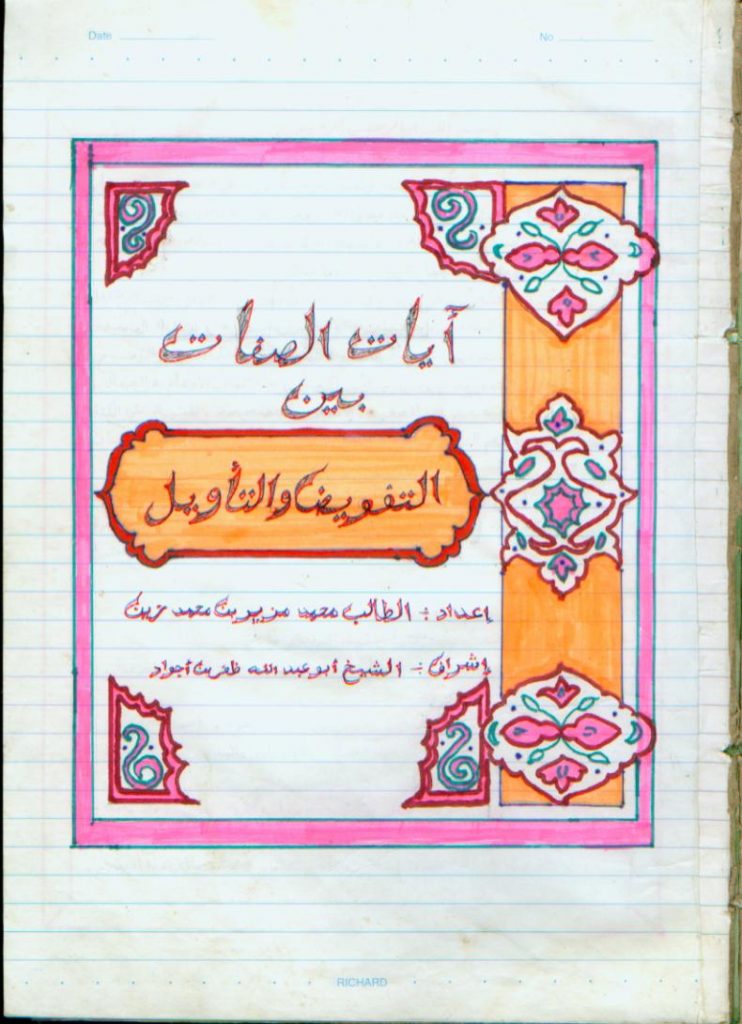 Date No
آيات الصفات
بين
التفويض والتأويل
إعداد : الطالب محمد مزير بن محمد زين
إشراف : الشيخ أبو عبد الله ظفر بن أجواد
RICHARD